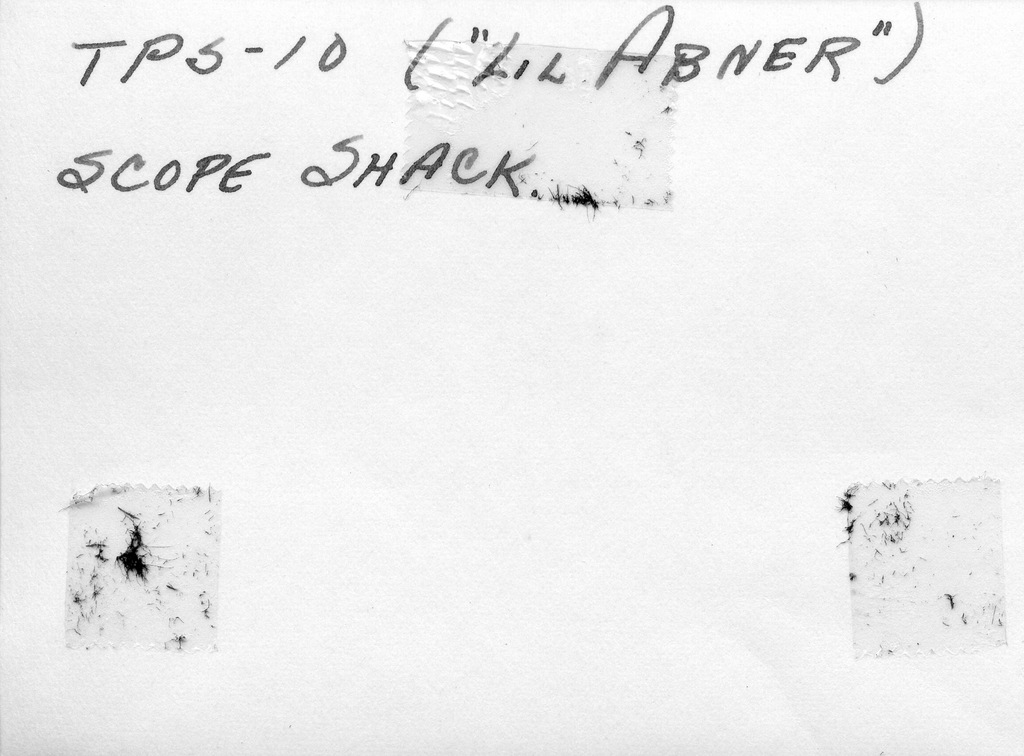 TPS-10 ("LIL ABNER")
SCOPE SHACK.